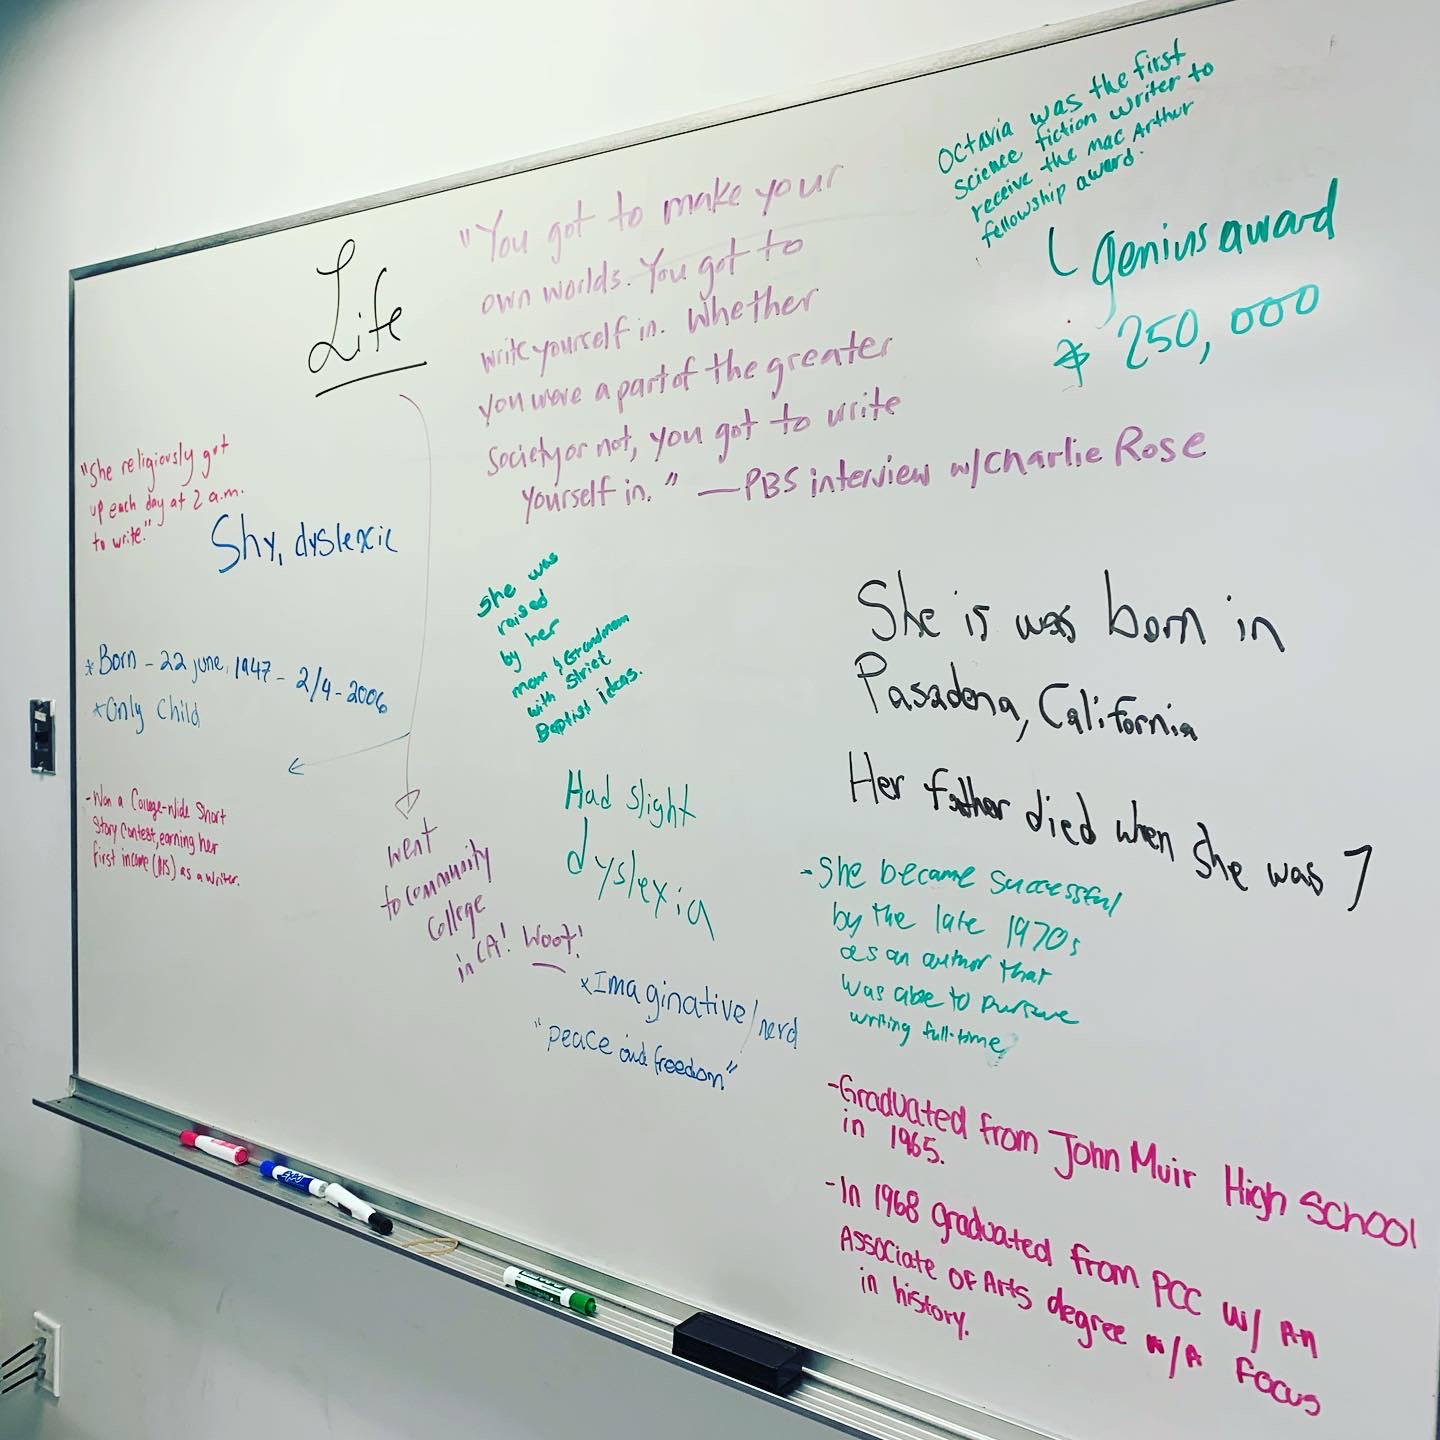 Life
"You got to make your
own worlds. You got to
write yourself in. Whether
you were a part of the greater
society or not, you got to write
yourself in." — PBS interview w/ Charlie Rose
Octavia was the first
science fiction writer to
receive the mac Arthur
fellowship award.
Genius award
$ 250,000
"She religiously got
up each day at 2 a.m.
to write."
Shy, dyslexic
* Born - 22 june, 1947 - 2/4-2006
* Only Child
- Won a College-Wide Short
Story Contest, earning her
first income ($15) as a writer.
went
to community
College
in CA! Woot!
She was
raised
by her
mom & Grandmom
with strict
Baptist ideas.
Had slight
dyslexia
* Imaginative/nerd
"peace and freedom"
She is was born in
Pasadena, California
Her father died when she was 7
- She became successful
by the late 1970s
as an author that
was able to pursue
writing full-time
- Graduated from John Muir High School
in 1965.
- In 1968 graduated from PCC w/ An
Associate of Arts degree w/A Focus
in history.
EXPO